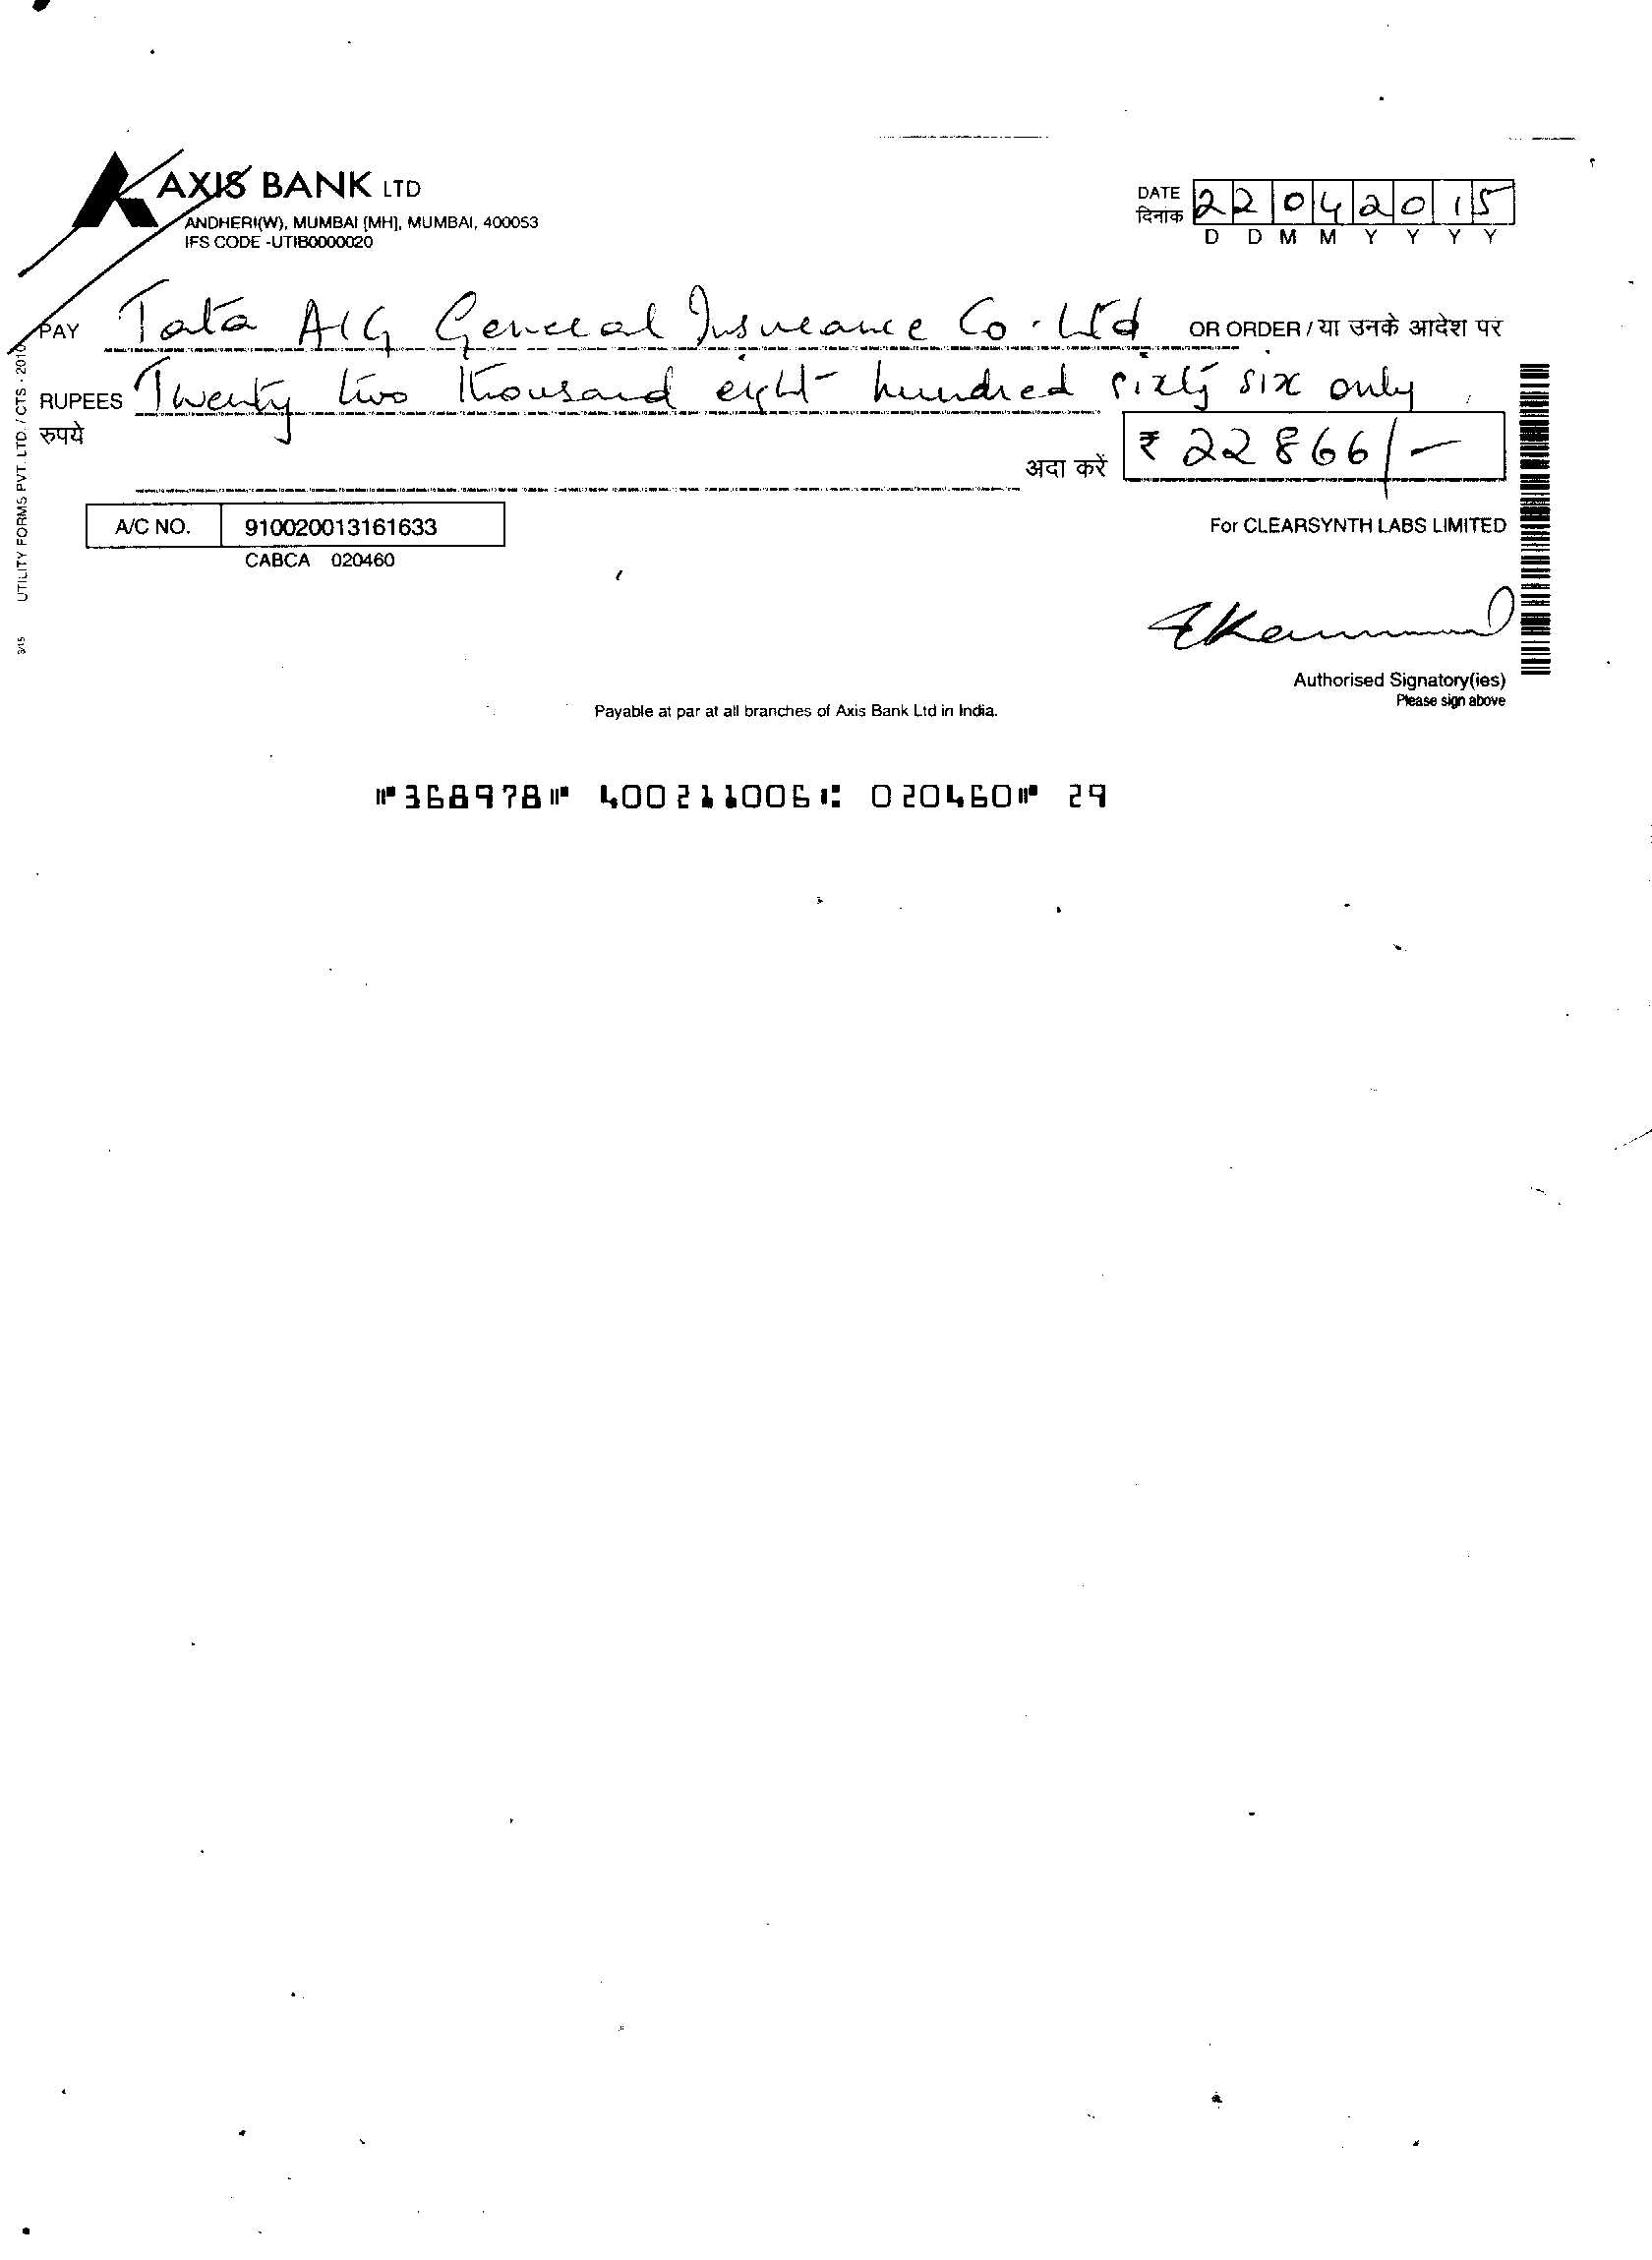 AXIS BANK LTD
ANDHERI(W), MUMBAI [MH], MUMBAI, 400053
IFS CODE -UTIB0000020
DATE 22042015
दिनांक
D D M M Y Y Y Y
PAY Tata AIG General Insurance Co. Ltd OR ORDER / या उनके आदेश पर
RUPEES Twenty two thousand eight hundred sixty six only
रुपये
अदा करें ₹ 22866/-
A/C NO. 910020013161633
CABCA 020460
For CLEARSYNTH LABS LIMITED
Authorised Signatory(ies)
Please sign above
Payable at par at all branches of Axis Bank Ltd in India.
⑈368978⑈ 400211006⑆ 020460⑈ 29
UTILITY FORMS PVT. LTD. / CTS - 2010